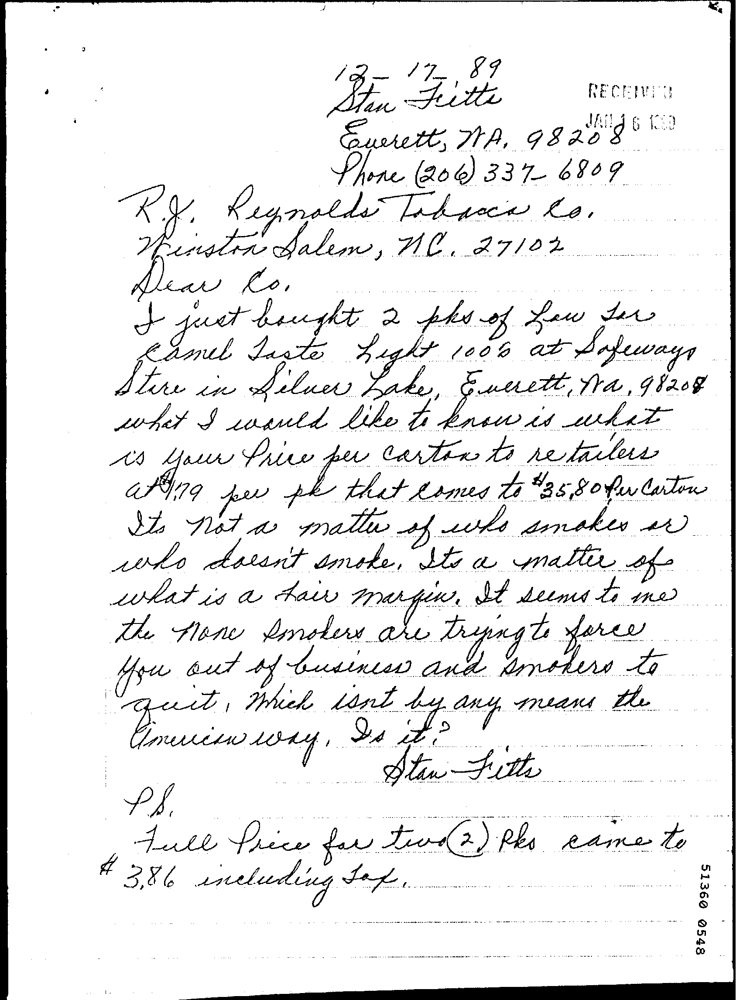 12-17-89
Stan Fitts
RECEIVED
Everett, WA. 98208
Phone (206) 337-6809
R.J. Reynolds Tobacco Co.
Winston Salem, NC. 27102
Dear Co.
I just bought 2 pks of Low Tar
Camel Taste Light 100s at Safeways
Store in Silver Lake, Everett, Wa, 98208
what I would like to know is what
is your Price per carton to retailers
at $1.79 per pk that comes to $35.80 Per Carton
Its not a matter of who smokes or
who doesn't smoke. Its a matter of
what is a fair margin. It seems to me
the None Smokers are trying to force
you out of business and smokers to
quit, Which isnt by any means the
American way. Is it?
Stan Fitts
P.S.
Full Price for two (2) Pks came to
$3.86 including Tax.
51360 0548